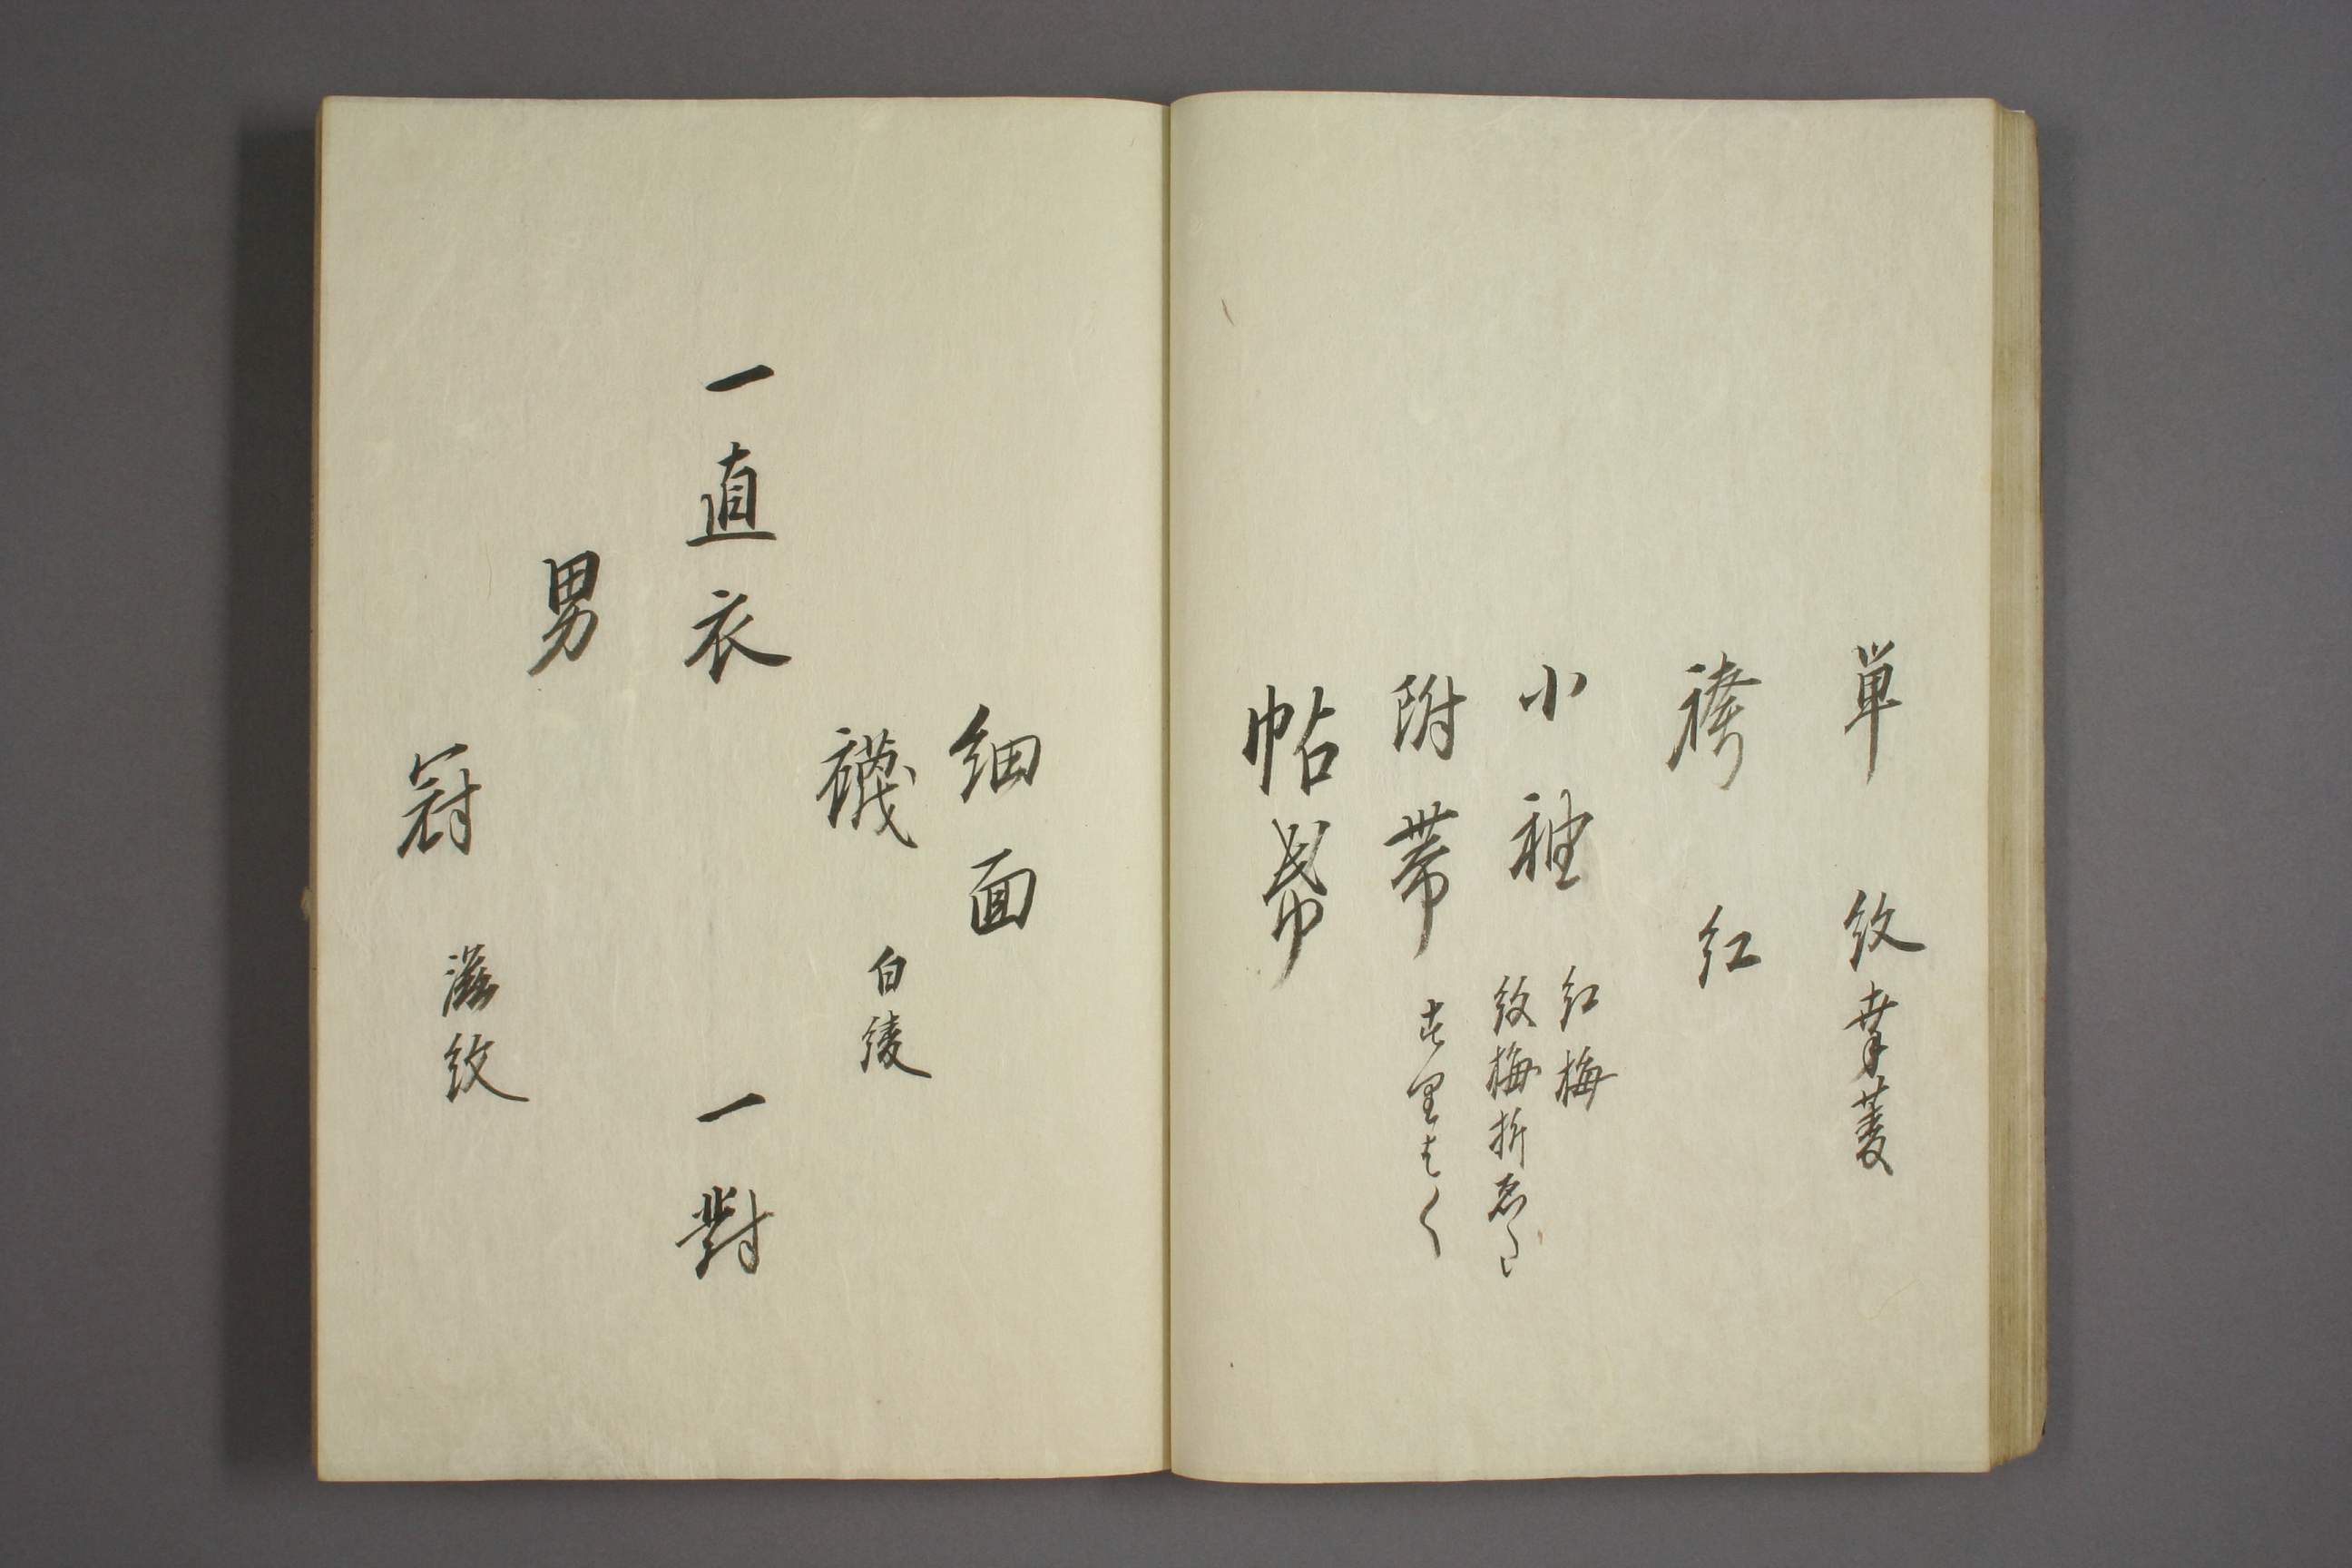 単 紋幸菱
袴 紅
小袖 紅梅
紋梅折ゑた
附帯
帖帋
細面
襪 白綾
一直衣 一對
男
冠 滋紋